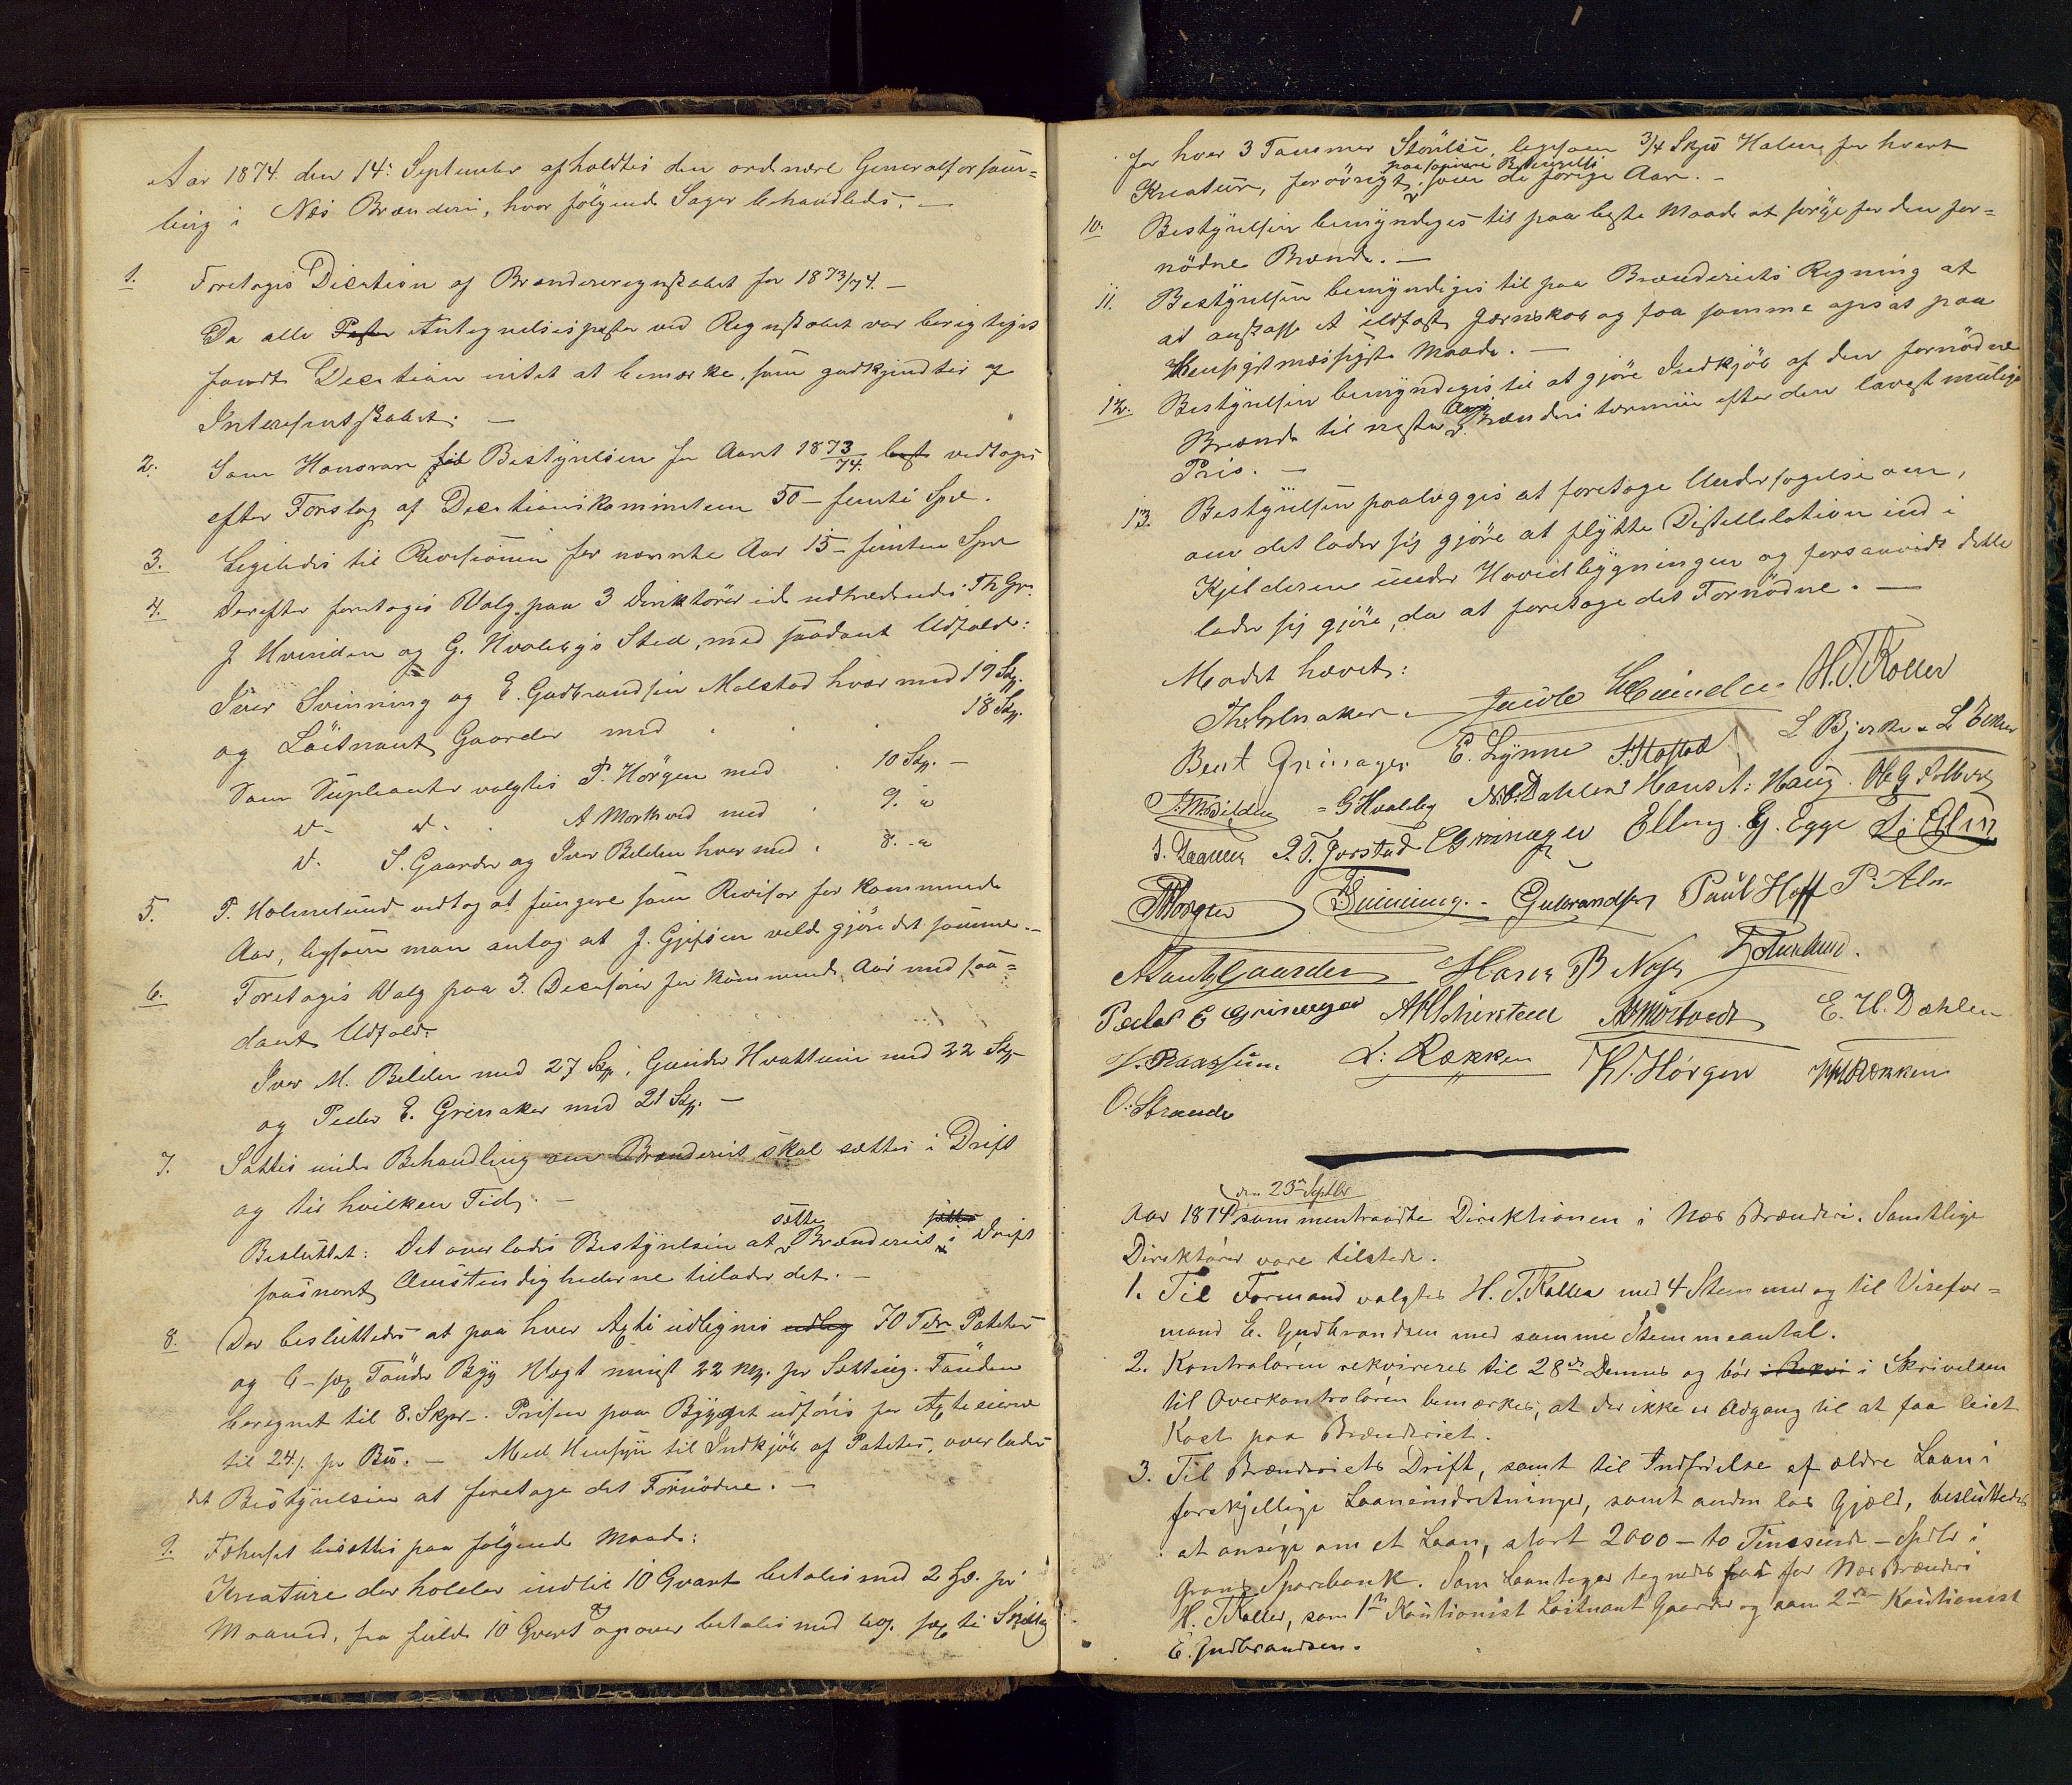 Aar 1874. den 14de September afholdtes den ordnære Generalforsam=
ling i Næs Brænderi, hvor følgende Sager behandledes. —
1. Foretoges Decition af Brænderiregnskabet for 1873/74. —
Da alle Poster Antegnelsesposter ved Regnskabet var berigtiges
fandt Decitionen intet at bemærke, som godkjendtes af
Interesentskabet. —
2. Som Honorar til Bestyrelsen for Aaret 1873/74. vedtoges
efter Forslag af Decitionskomiteen 50 – femti Spd.
3. Ligeledes til Revisionen for nævnte Aar 15 – femten Spd
4. Derefter foretoges Valg paa 3 Direktører i de udtrædendes Th Gr.
J Hvinden og G. Hvalebys Sted, med saadant Udfald:
Iver Svinning og E. Gudbrandsen Molstad hver med 19 St.
og Løitnant Gaarder med . . 18 St.
Som Supleanter valgtes P. Horgen med . 10 St. —
d. d. A Morkved med . 9. "
d. S. Gaarder og Iver Bilden hver med . 8. "
5. T. Holmelund vedtog at fungere som Revisor for kommende
Aar, ligesom man antog at J. Gjefsen vilde gjøre det samme. —
6. Foretoges Valg paa 3. Decisører for kommende Aar med saa=
dant Udfald:
Iver M. Bilden med 27 St, Gunder Hvattum med 22 St
og Peder E. Grinaker med 21 St. —
7. Sattes under Behandling om Brænderiet skal sættes i Drift
og til hvilken Tid. —
sætte sættes
Besluttet: Det overlades Bestyrelsen at Brænderiet i Drift
saasnart Omstendighederne tillader det. —
8. Der besluttedes at paa hver Agtie udlignes udlig 70 Tdr Poteter
og 6 – sex Tønder Byg Vægt minst 22 pr Sætting. Tønden
beregnet til 8. Skjpr. Prisen paa Bygget udføres for Agtieeierne
til 24 s. pr Bd. — Med Hensyn til Indkjøb af Poteter, overlades
det Bestyrelsen at foretage det Fornødne. —
9. Fæhuset besættes paa følgende Maade:
Kreature der holder indtil 10 Qvart betales med 2 Spd. pr
og
Maaned, fra fulde 10 Qvart opover betales med sex ti Skilling
for hver 3 Tommer Størelse, ligesom 3/4 Skjp Halm for hvert
paa Betingelse
Kreatur, forøvrigt som de forige Aar. —
10. Bestyrelsen bemyndiges til paa beste Maade at sørge for den for=
nødne Brænde. —
11. Bestyrelsen bemyndiges til paa Brænderiets Regning at
at anskaffe et ildfast Jernskab og faa samme opsat paa
Hensigtmæssigste Maade. —
12. Bestyrelsen bemyndiges til at gjøre Indkjøb af den fornødne
Aars
Brænde til neste Brænderi termin efter den lavest mulige
Pris. —
13. Bestyrelsen paalægges at foretage Undersøgelse om,
om det lader sig gjøre at flytte Distellation ind i
Kjelderen under Hovedbygningen og forsaavidt dette
lader sig gjøre, da at foretage det Fornødne. —
Mødet hævet:
Th. Grinaker. Jacob Hvinden H. T. Koller
Bent Grinager. E. Lynne L Bjerke L Ecker
I. M. Bilden G Hvaleby N. O. Dæhlen Hans A: Haug. Ole G
J. Raanes P. T. Jorstad Grinager Elling G. Egge
P Horgen I Svinning. Gulbrandsen Paul Hoff P. Alm
A Gaarder Hans B Næss T Holmelund.
Peder E Grinager A Morkved E. H. Dæhlen
L: Rækken K. Horgen Rækken
O: Strande
den 23de Septbr
Aar 1874 sammentraadte Direktionen i Næs Brænderi. Samtlige
Direktører vare tilstede.
1. Til Formand valgtes H. T. Koller med 4 Stemmer og til Visefor=
mand E. Gudbrandsen med samme Stemmeantal.
2. Kontraløren rekvireres til 28de Dennes og bør i Skrivelsen
til Overkontraløren bemærkes, at der ikke er Adgang til at faa leiet
Kost paa Brænderiet.
3. Til Brænderiets Drift, samt til Indfrielse af ældre Laan i
forskjellige Laaneindretninger, samt anden løs Gjæld, besluttedes
at ansøge om et Laan, stort 2000 – to Tinesinde – Spdlr i
Grans Sparebank. Som Laantager tegnedes for Næs Brænderi
H. T. Koller, som 1ste Kautionist Løitnant Gaarder og som 2den Kautionist
E. Gudbrandsen.